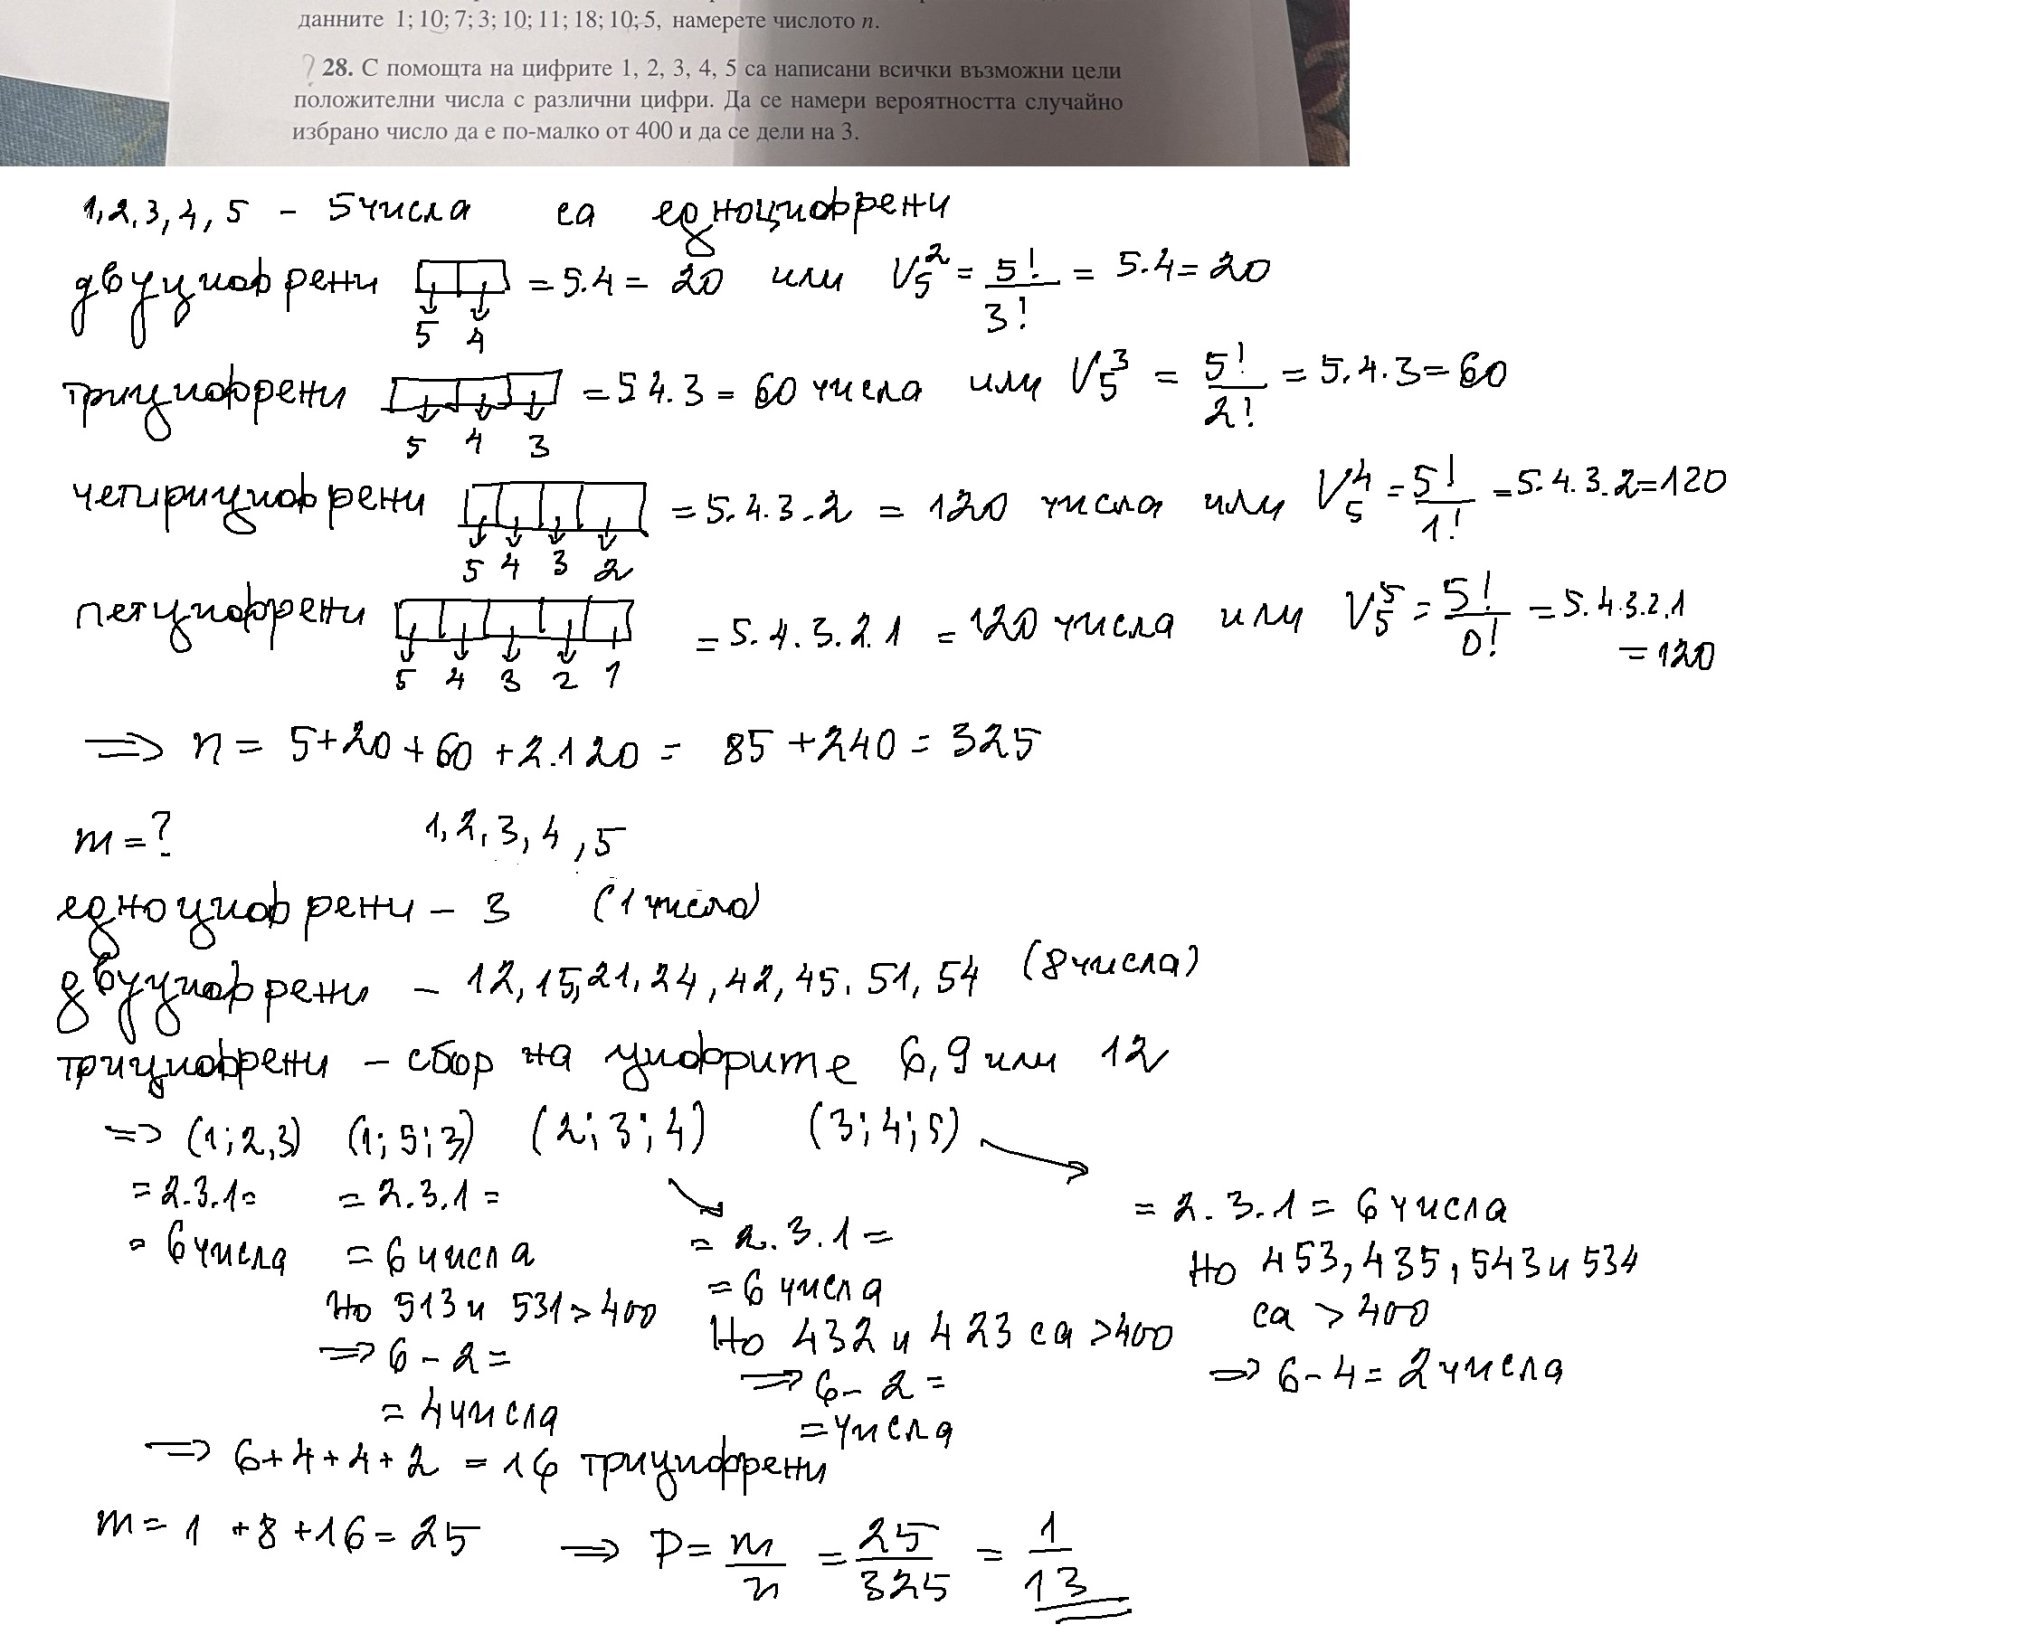 данните 1; 10; 7; 3; 10; 11; 18; 10; 5, намерете числото n.
? 28. С помощта на цифрите 1, 2, 3, 4, 5 са написани всички възможни цели
положителни числа с различни цифри. Да се намери вероятността случайно
избрано число да е по-малко от 400 и да се дели на 3.
1, 2, 3, 4, 5 - 5 числа са едноцифрени
двуцифрени = 5.4 = 20 или V₅² = 5!/3! = 5.4 = 20
5 4
трицифрени = 5 4.3 = 60 числа или V₅³ = 5!/2! = 5.4.3 = 60
5 4 3
четирицифрени = 5.4.3.2 = 120 числа или V₅⁴ = 5!/1! = 5.4.3.2 = 120
5 4 3 2
петцифрени = 5.4.3.2.1 = 120 числа или V₅⁵ = 5!/0! = 5.4.3.2.1
= 120
5 4 3 2 1
=> n = 5+20+60+2.120 = 85+240 = 325
m = ? 1, 2, 3, 4, 5
едноцифрени - 3 (1 число)
двуцифрени - 12, 15, 21, 24, 42, 45, 51, 54 (8 числа)
трицифрени - сбор на цифрите 6, 9 или 12
=> (1; 2, 3) (1; 5; 3) (2; 3; 4) (3; 4; 5)
= 2.3.1 =
= 6 числа
= 2.3.1 =
= 6 числа
Но 513 и 531 > 400
=> 6 - 2 =
= 4 числа
= 2.3.1 =
= 6 числа
Но 432 и 423 са > 400
=> 6 - 2 =
= числа
= 2.3.1 = 6 числа
Но 453, 435, 543 и 534
са > 400
=> 6 - 4 = 2 числа
=> 6+4+4+2 = 16 трицифрени
m = 1 + 8 + 16 = 25 => P = m/n = 25/325 = 1/13